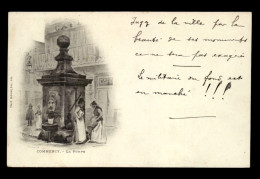 Jugz de la ville par la
beauté de ses monuments
ce ne sera pas exagéré
Le militaire du fond est
en marché !!!
COMMERCY. - La Pompe